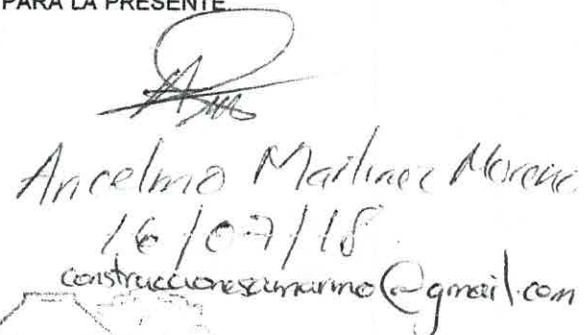 PARA LA PRESENTE
Ancelmo Martinez Moreno
16/07/18
construccionesamarmo@gmail.com